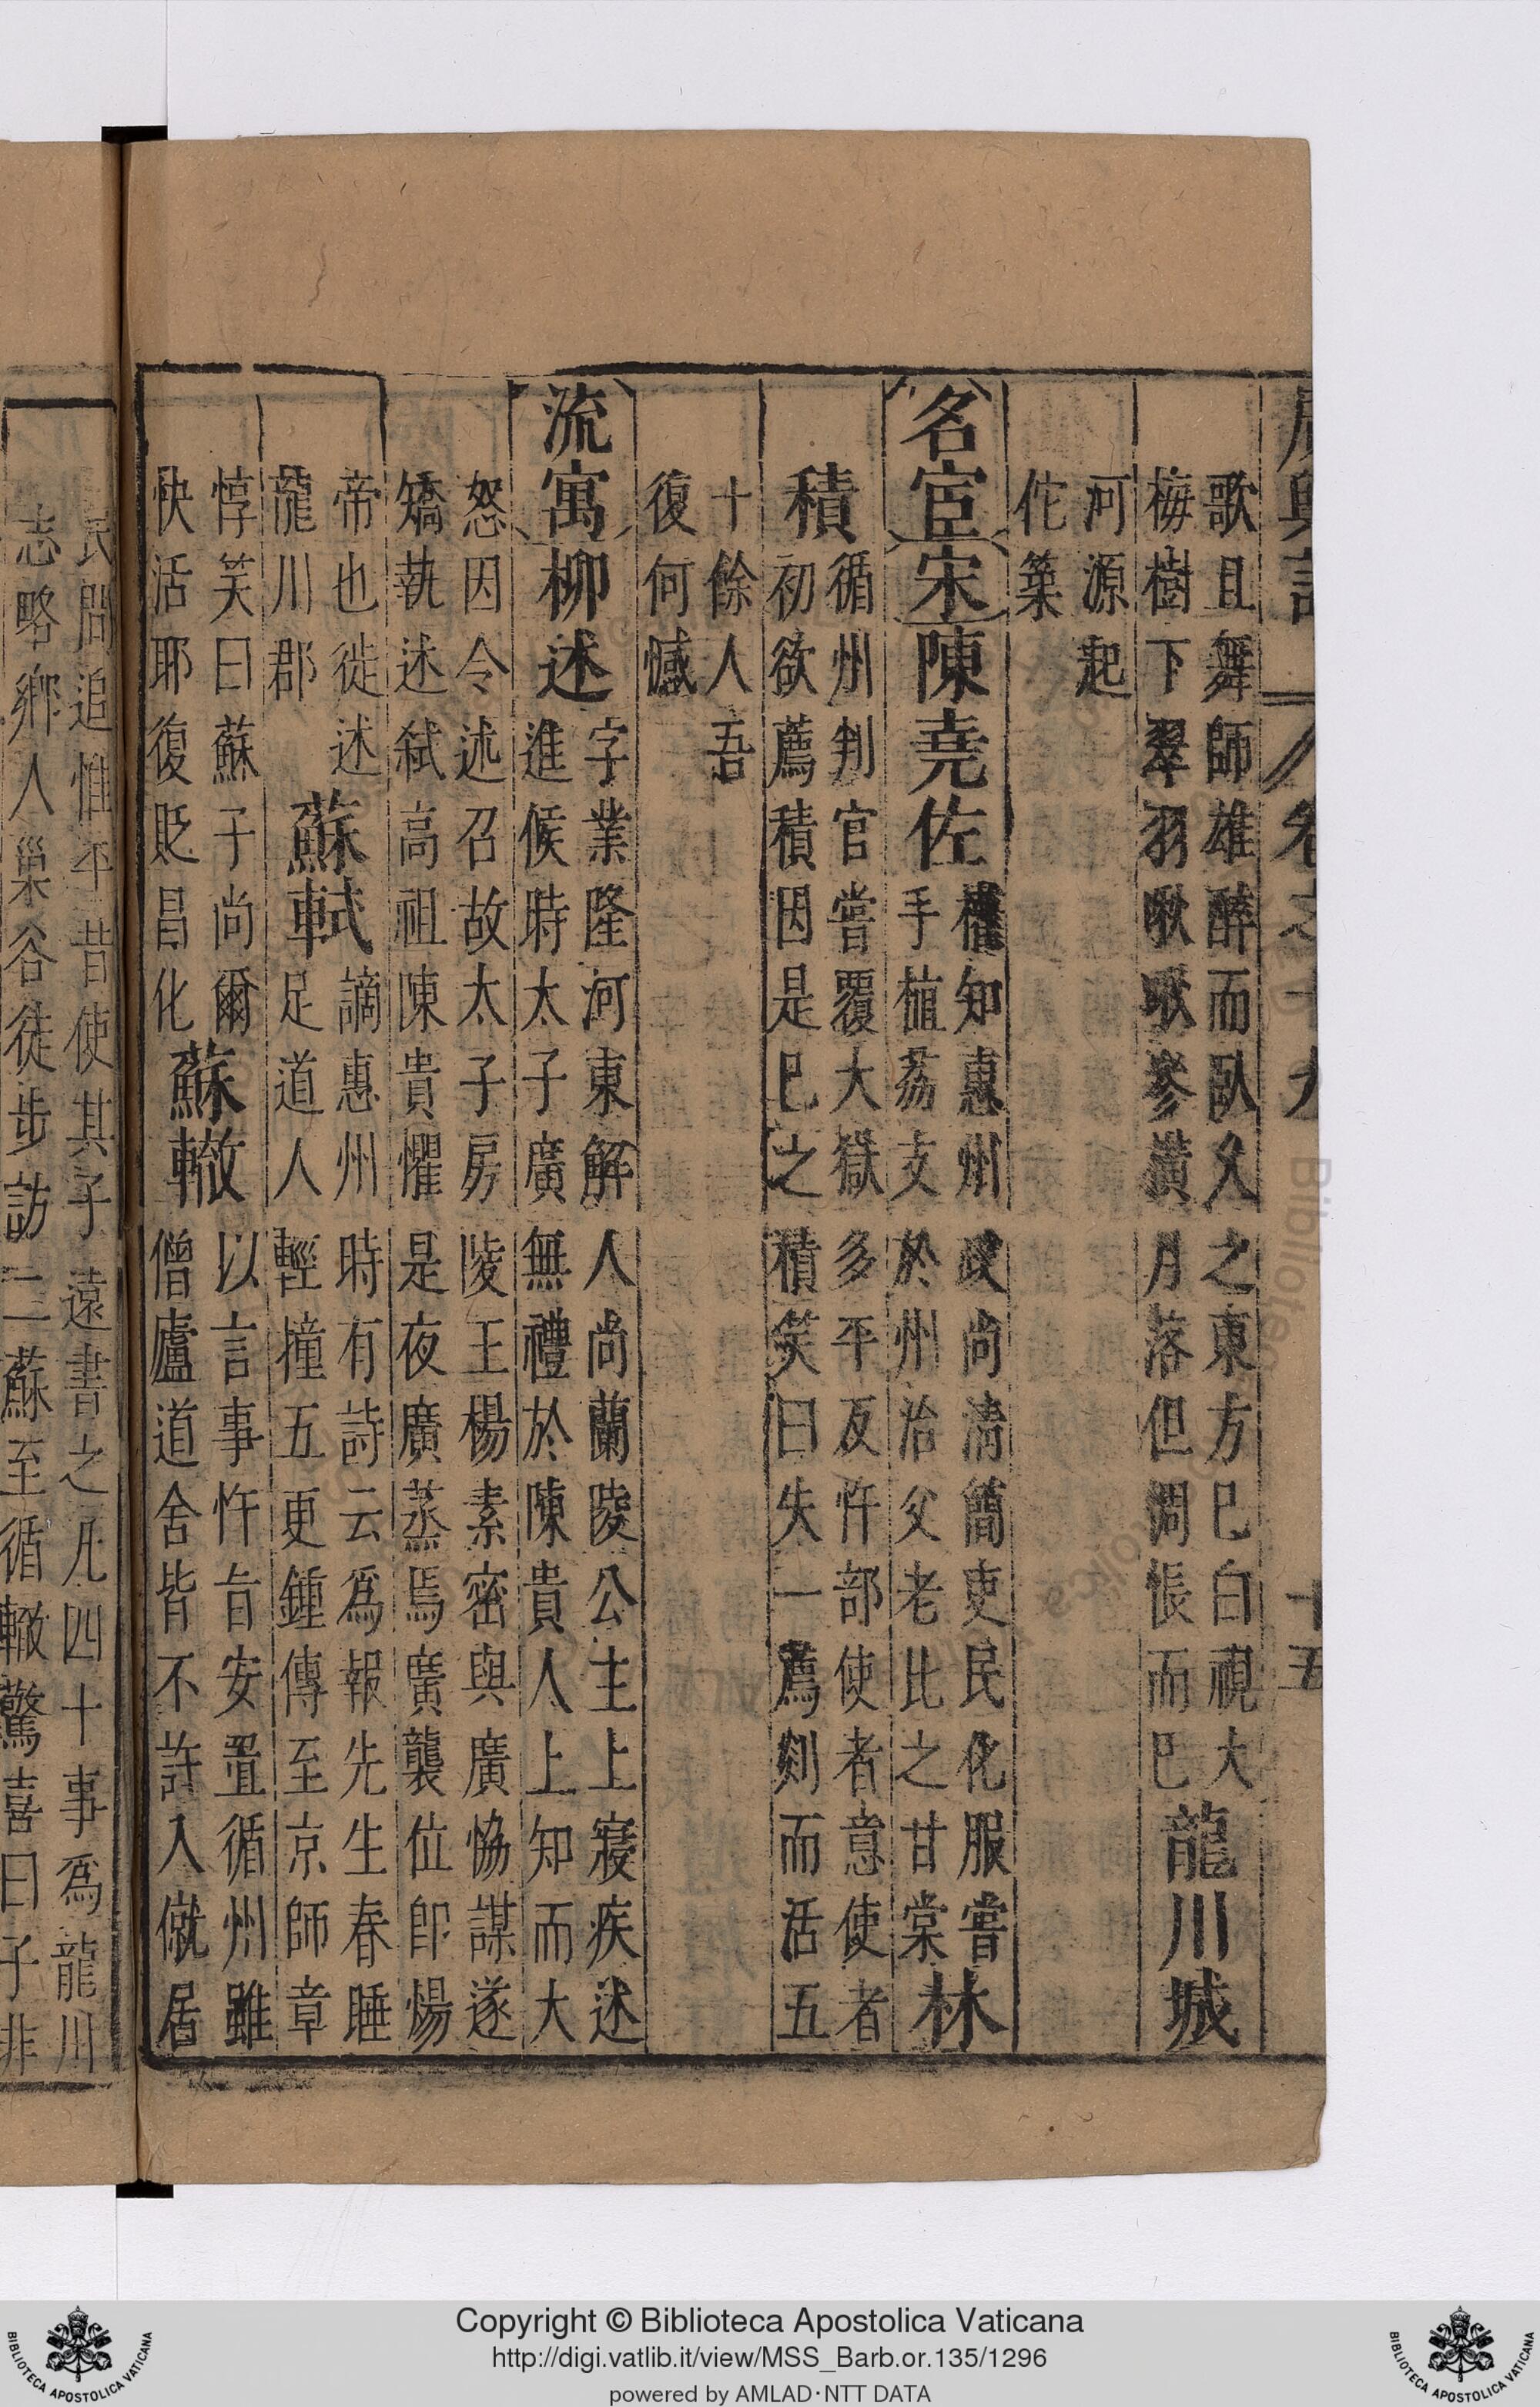 廣輿記 卷之十九 十五
歌且舞師雄醉而臥久之東方已白視大
梅樹下翠羽啾啾參橫月落但惆悵而已
龍川城
河源起
佗築
名宦 宋 陳堯佐
權知惠州政尚清簡吏民化服嘗
手植荔支於州治父老比之甘棠
林
積
循州判官嘗覆大獄多平反忤部使者意使者
初欲薦積因是已之積笑曰失一薦剡而活五
十餘人吾
復何憾
流寓 柳述
字業隆河東解人尚蘭陵公主上寢疾述
進候時太子廣無禮於陳貴人上知而大
怒因令述召故太子房陵王楊素密與廣恊謀遂
矯執述弑高祖陳貴懼是夜廣蒸焉廣襲位卽煬
帝也徙述
龍川郡
蘇軾
謫惠州時有詩云爲報先生春睡
足道人輕撞五更鍾傳至京師章
惇笑曰蘇子尚爾
快活耶復貶昌化
蘇轍
以言事忤旨安置循州雖
僧廬道舍皆不許入僦居
民間追惟平昔使其子遠書之凡四十事爲龍川
志略鄉人巢谷徒步訪二蘇至循轍驚喜曰子非
Copyright © Biblioteca Apostolica Vaticana
http://digi.vatlib.it/view/MSS_Barb.or.135/1296
powered by AMLAD·NTT DATA
BIBLIOTECA APOSTOLICA VATICANA
BIBLIOTECA APOSTOLICA VATICANA